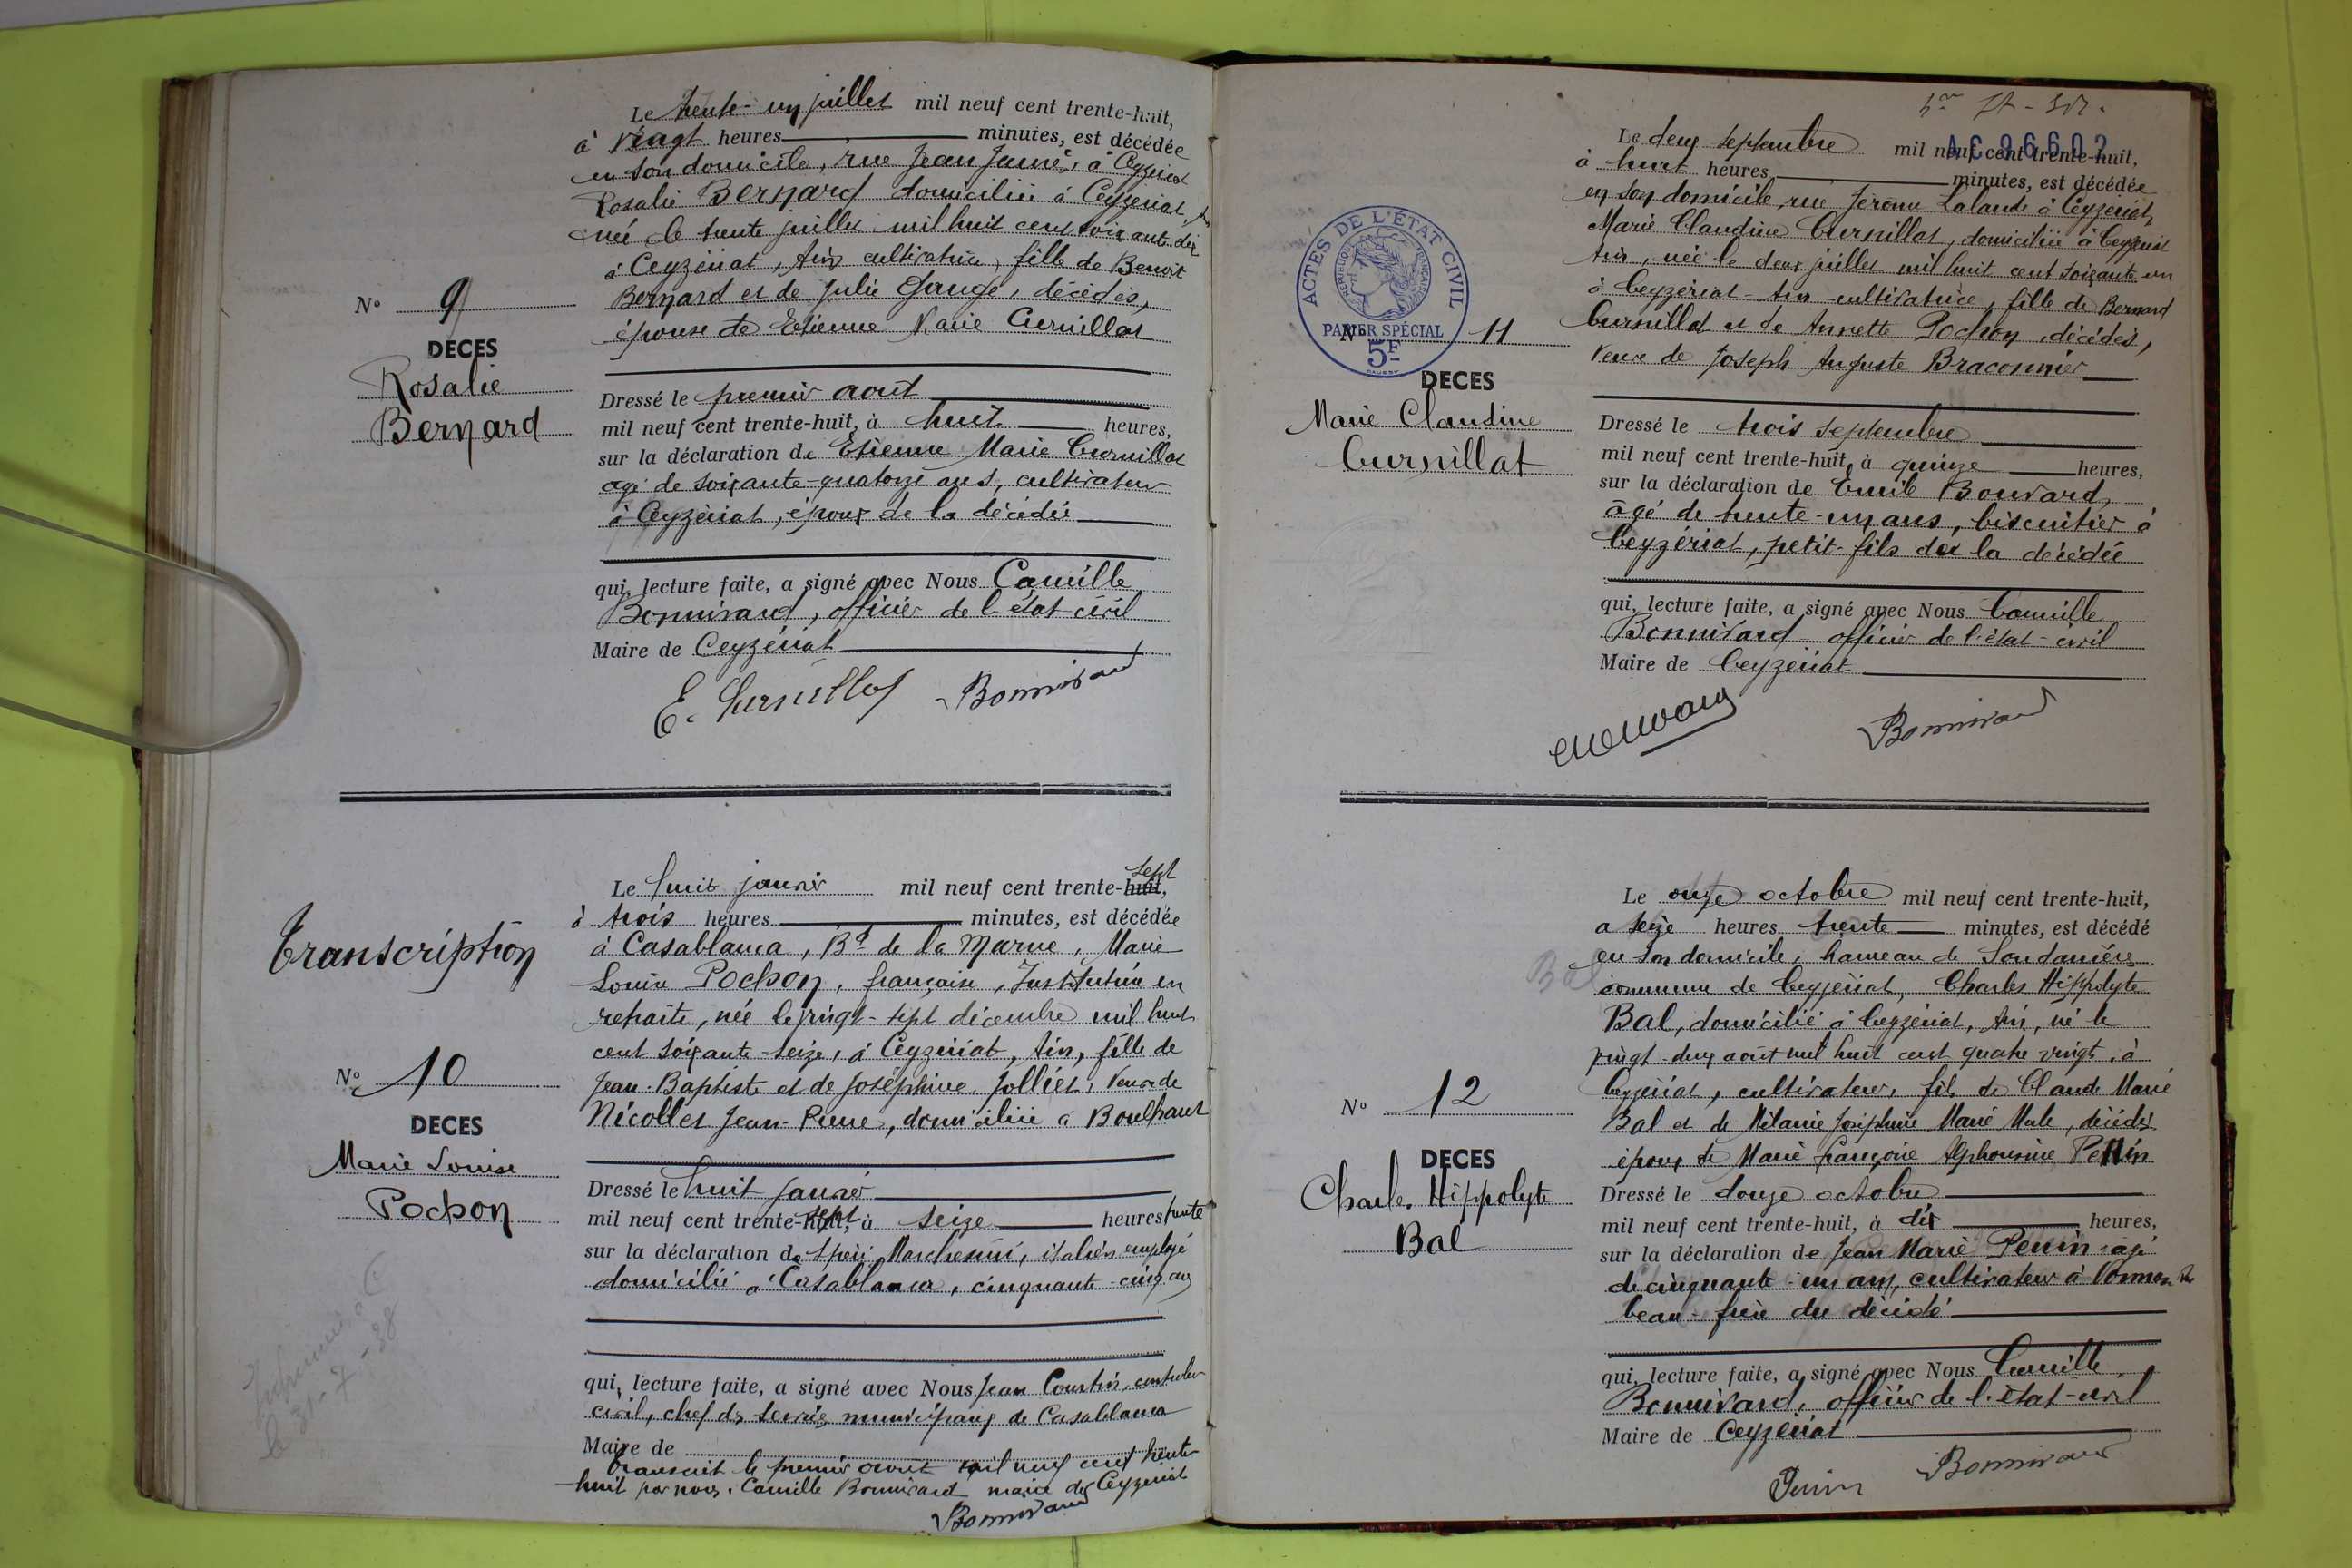 Le trente-un juillet mil neuf cent trente-huit,
à vingt heures minutes, est décédée
en son domicile, rue Jean Jaurès, à Ceyzériat
Rosalie Bernard domiciliée à Ceyzériat, Ain
née le trente juillet mil huit cent soixante-dix
à Ceyzériat, Ain, cultivatrice, fille de Benoit
Bernard et de Julie Gauge, décédés,
épouse de Etienne Marie Curnillat
N° 9
DECES
Rosalie
Bernard
Dressé le premier août
mil neuf cent trente-huit, à huit heures,
sur la déclaration de Etienne Marie Curnillat
agé de soixante-quatorze ans, cultivateur
à Ceyzériat, époux de la décédée
qui, lecture faite, a signé avec Nous Camille
Bonnivard, officier de l'état-civil
Maire de Ceyzériat
E. Curnillat Bonnivard
Transcription
N° 10
DECES
Marie Louise
Pochon
Le huit janvier mil neuf cent trente-huit, sept
à trois heures minutes, est décédée
à Casablanca, Bd de la Marne, Marie
Louise Pochon, française, Institutrice en
retraite, née le vingt-sept décembre mil huit
cent soixante-seize, à Ceyzériat, Ain, fille de
Jean-Baptiste et de Joséphine Jolliet, veuve de
Nicollet Jean-Pierre, domiciliée à Boulhaut
Dressé le huit janvier
mil neuf cent trente-huit, sept à seize heures trente
sur la déclaration de Marchesini, italien employé
domicilié à Casablanca, cinquante-cinq ans
qui, lecture faite, a signé avec Nous Jean Courtin, contrôleur
civil, chef des services municipaux de Casablanca
Maire de
Transcrit le premier août mil neuf cent trente
huit par nous, Camille Bonnivard maire de Ceyzériat
Bonnivard
AC 96602
ACTES DE L'ÉTAT CIVIL
RÉPUBLIQUE FRANÇAISE
PAPIER SPÉCIAL
5F
Le deux septembre mil neuf cent trente-huit,
à huit heures, minutes, est décédée
en son domicile, rue Jérôme Lalande à Ceyzériat,
Marie Claudine Curnillat, domiciliée à Ceyzériat
Ain, née le deux juillet mil huit cent soixante-un
à Ceyzériat-Ain-cultivatrice, fille de Bernard
Curnillat et de Annette Pochon, décédés,
veuve de Joseph Auguste Braconnier
N° 11
DECES
Marie Claudine
Curnillat
Dressé le trois septembre
mil neuf cent trente-huit, à quinze heures,
sur la déclaration de Emile Bouvard,
âgé de trente-un ans, biscuitier à
Ceyzériat, petit-fils de la décédée
qui, lecture faite, a signé avec Nous Camille
Bonnivard officier de l'état-civil
Maire de Ceyzériat
Bonnivard
Bal
Le onze octobre mil neuf cent trente-huit,
à seize heures trente minutes, est décédé
en son domicile, hameau de Soudanières
commune de Ceyzériat, Charles Hippolyte
Bal, domicilié à Ceyzériat, Ain, né le
vingt-deux août mil huit cent quatre vingt, à
Ceyzériat, cultivateur, fils de Claude Marie
Bal et de Mélanie Joséphine Marie Mule, décédés
époux de Marie Françoise Alphonsine Perrin
N° 12
DECES
Charles Hippolyte
Bal
Dressé le douze octobre
mil neuf cent trente-huit, à dix heures,
sur la déclaration de Jean Marie Perrin âgé
de cinquante-un ans, cultivateur à Vonnas
beau-frère du décédé
qui, lecture faite, a signé avec Nous Camille
Bonnivard, officier de l'état-civil
Maire de Ceyzériat
Perrin Bonnivard